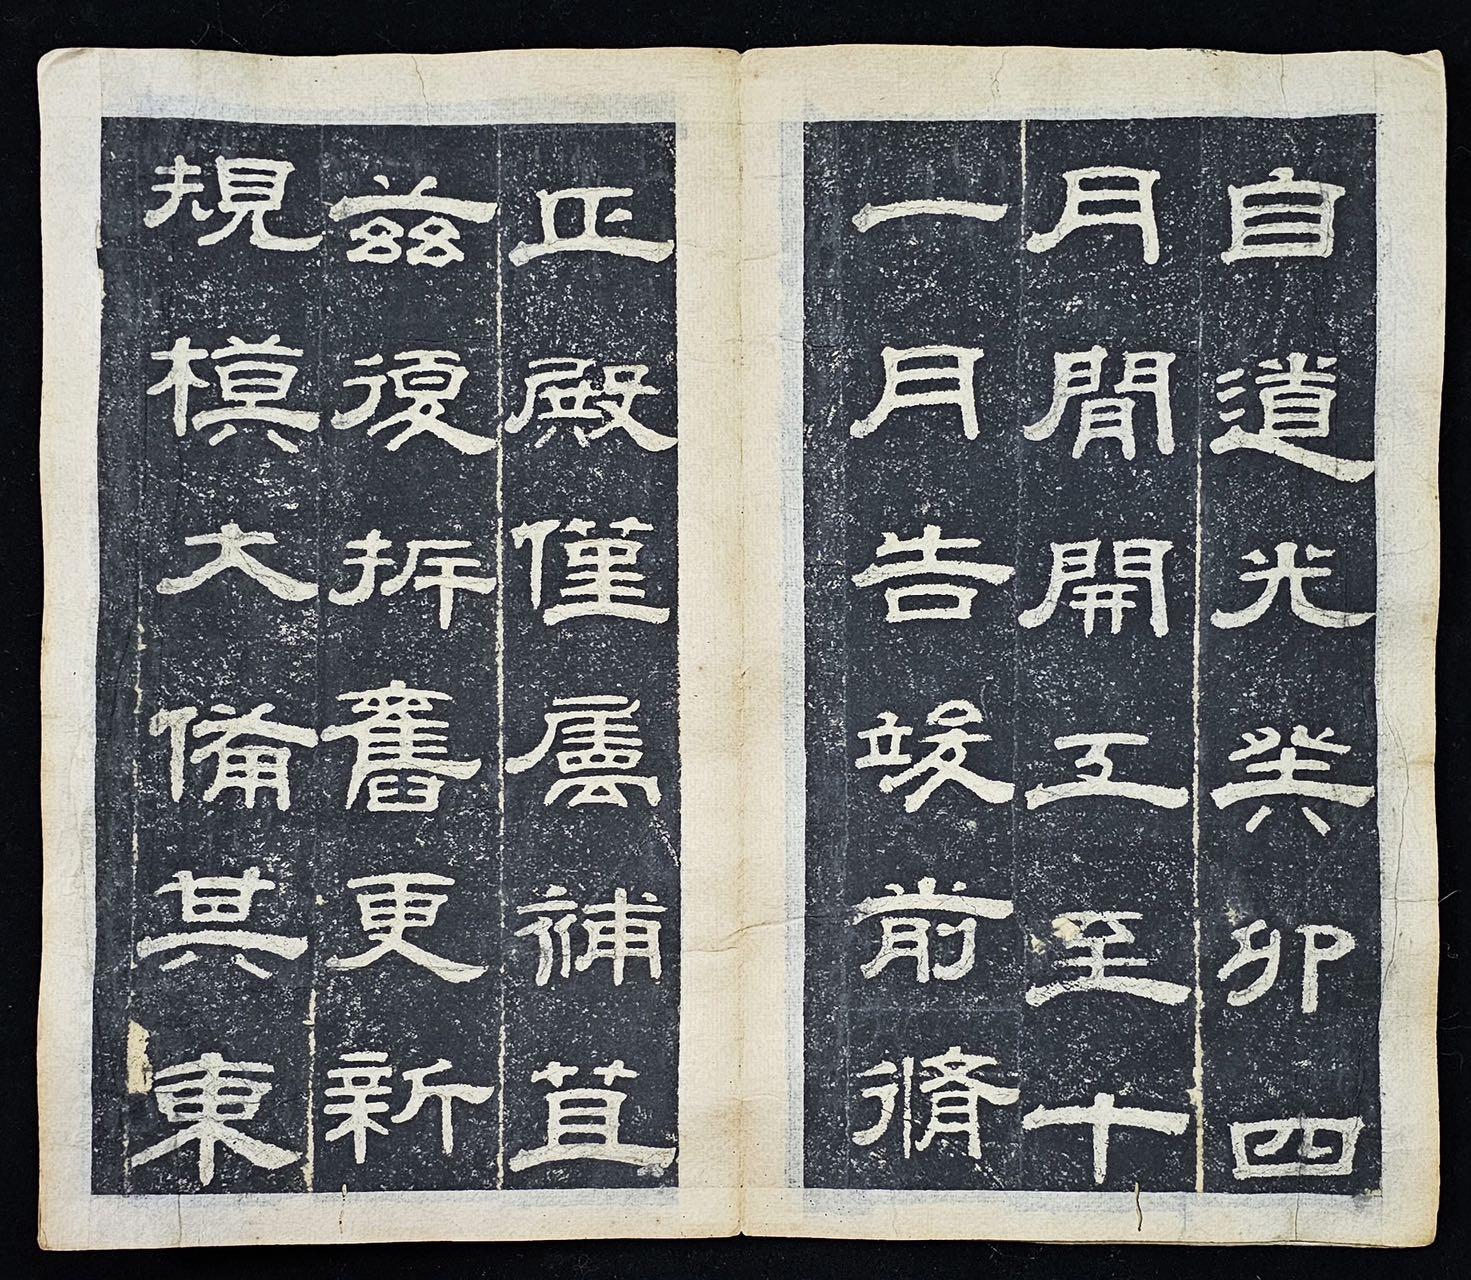 自道光癸卯四
月閒開工至十
一月告竣前脩
正殿僅爲補苴
兹復拆舊更新
規模大備其東